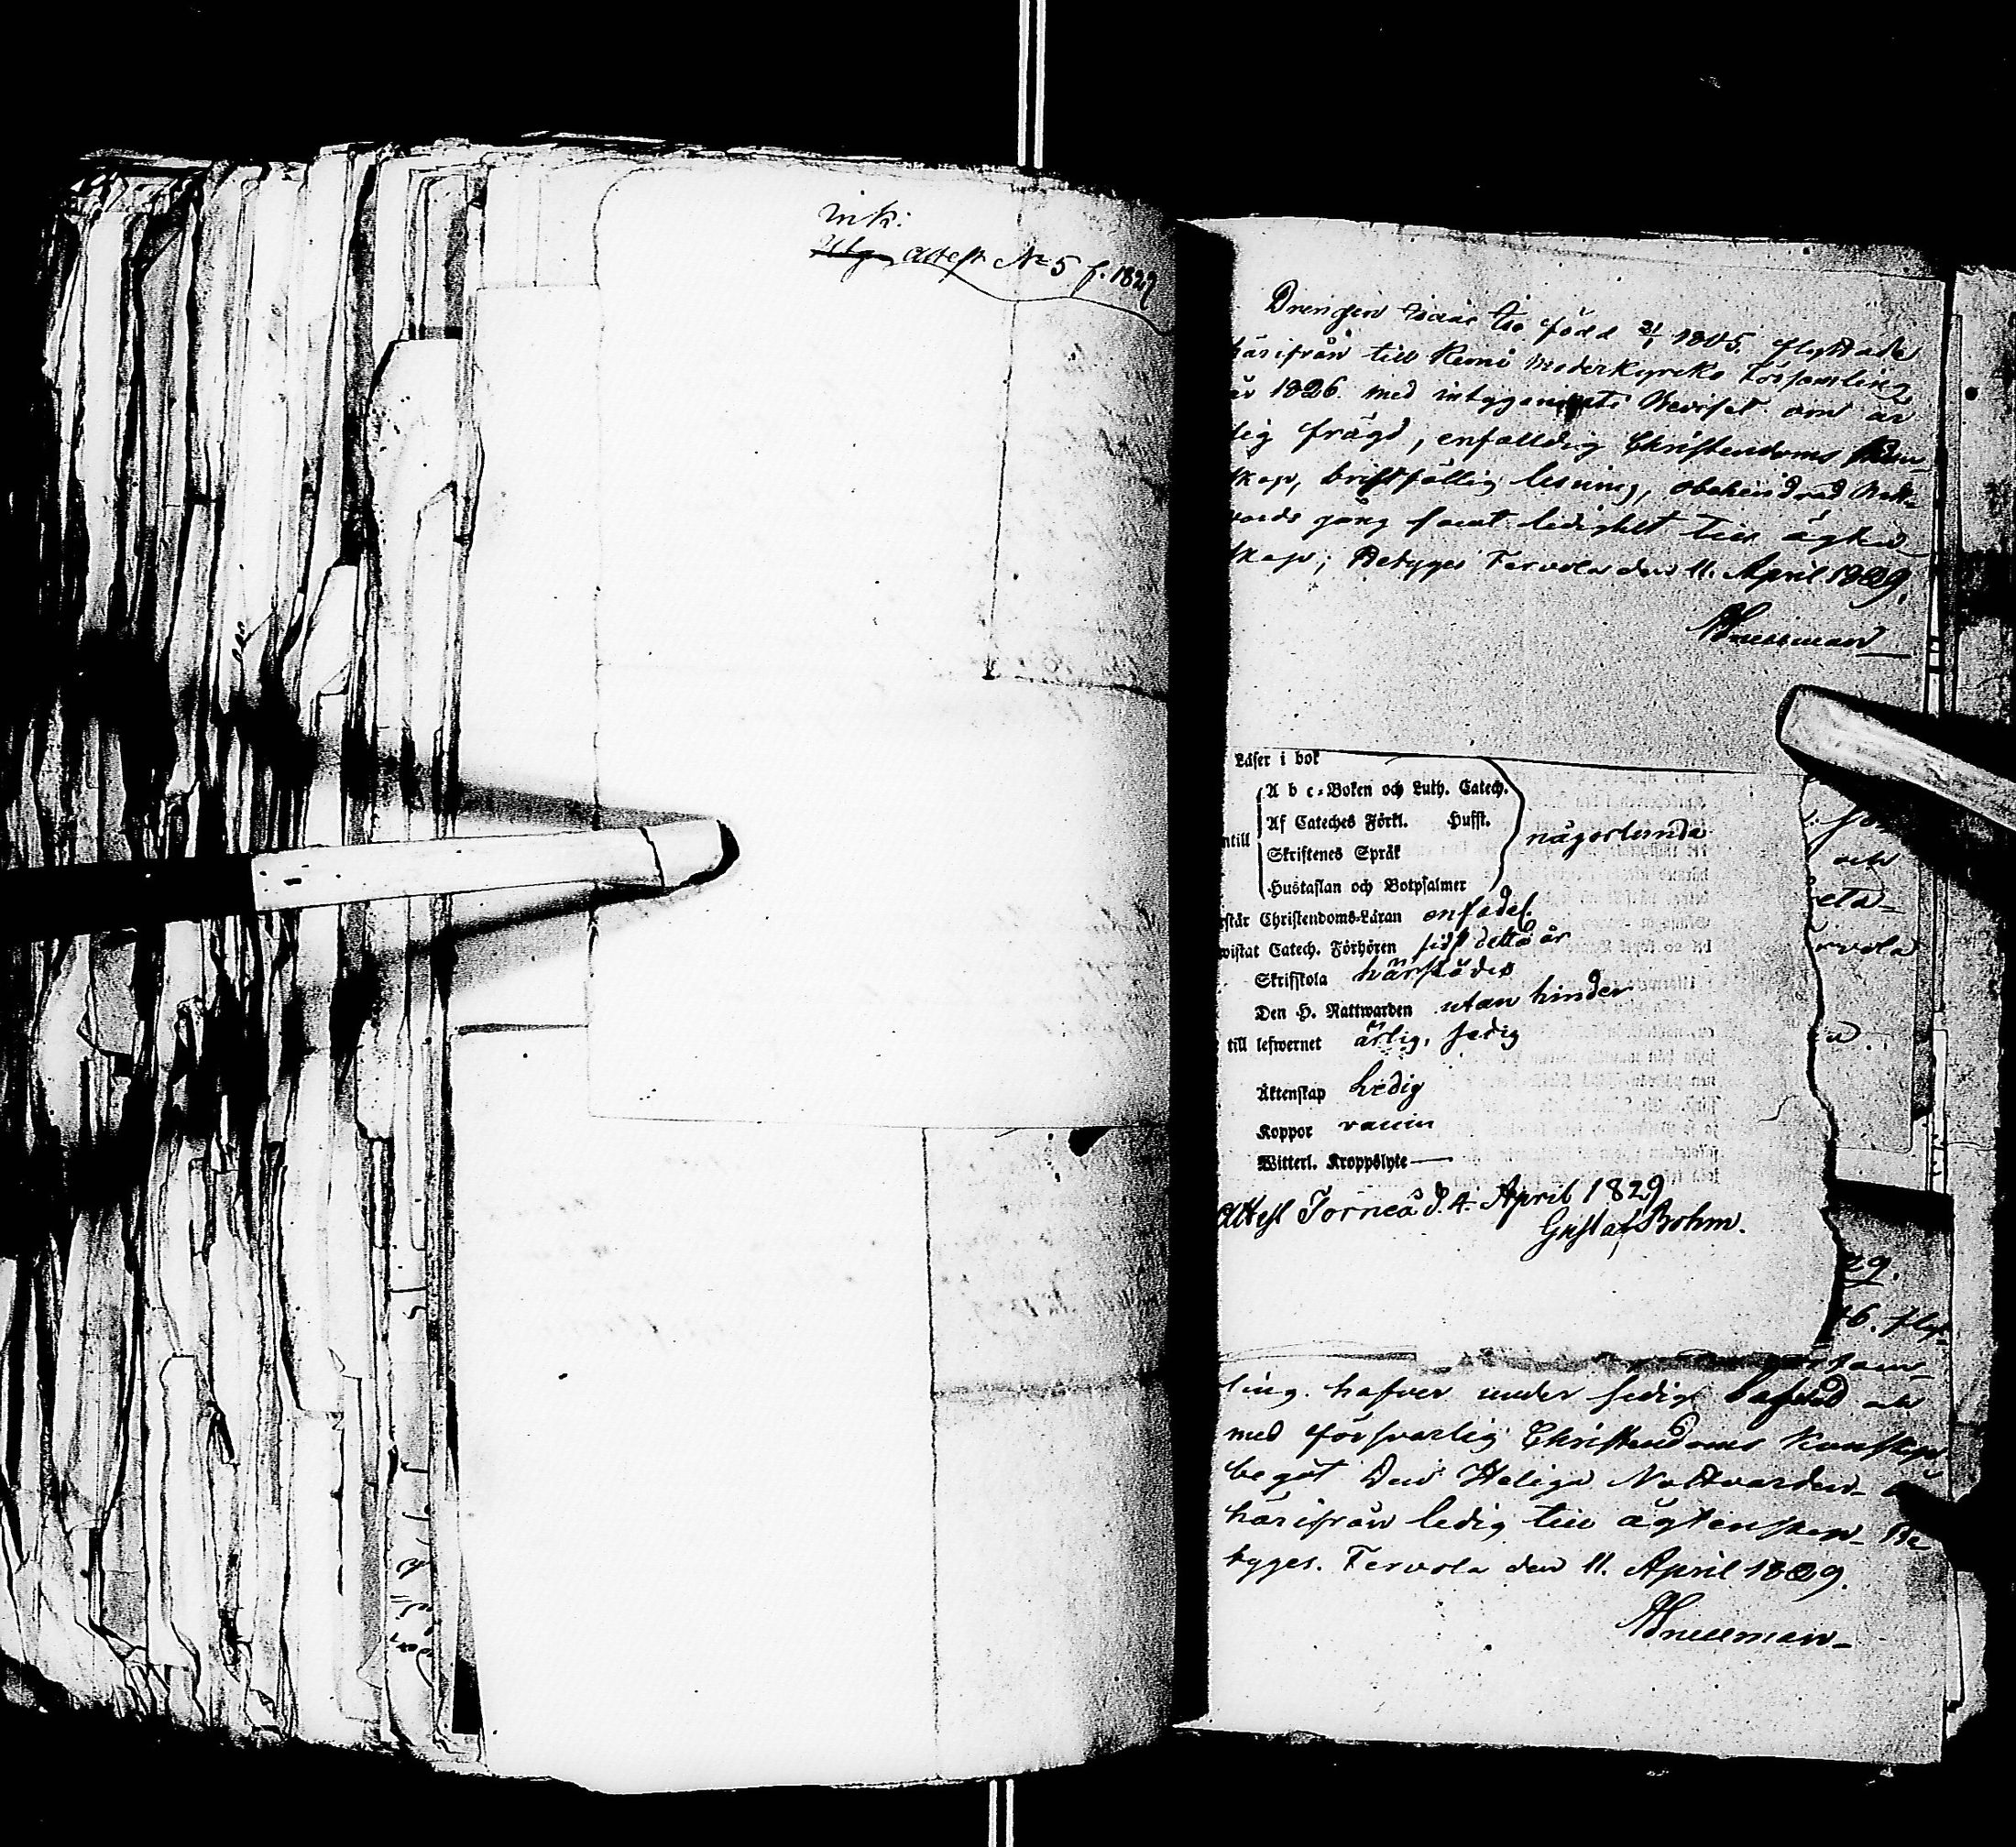 ink:
Utg attest № 5 f. 1829
Drengen Isaac Iso född 21/1 1805. flyttade
härifrån till Kemi Moderkyrko Församling
år 1826. med intygande Beviset om är
lig frägd, enfalldig Christendoms Kun-
skap, bristfällig lesning, obehindrad Natt-
vards gång samt ledighet till ägten-
skap; Betyges Tervola den 11. April 1829.
Snellman
Läser i bok
ntill
A b c-Boken och Luth. Catech.
Af Cateches Förkl. Hufst.
Skriftenes Språk
Hustaflan och Botpsalmer
någorlunda
rstår Christendoms-Läran enfadel.
wistat Catech. Förhören sidst detta år
Skrifskola härstädes
Den H. Nattwarden utan hinder
till lefwernet ärlig, sedig
Äktenskap Ledig
Koppor vaccin
Witterl. Kroppslyte —
Attest Torneå d. 4. April 1829
Gustaf Bohm.
och
eta-
rvola
29.
6. flyt-
församl-
ling. hafver under sedig lefnad och
med försvarlig Christendoms Kunskap
begåt Den Heliga Nattvarden-
härifrån ledig till ägtenskap- Be
tyges. Tervola den 11. April 1829.
Snellman-